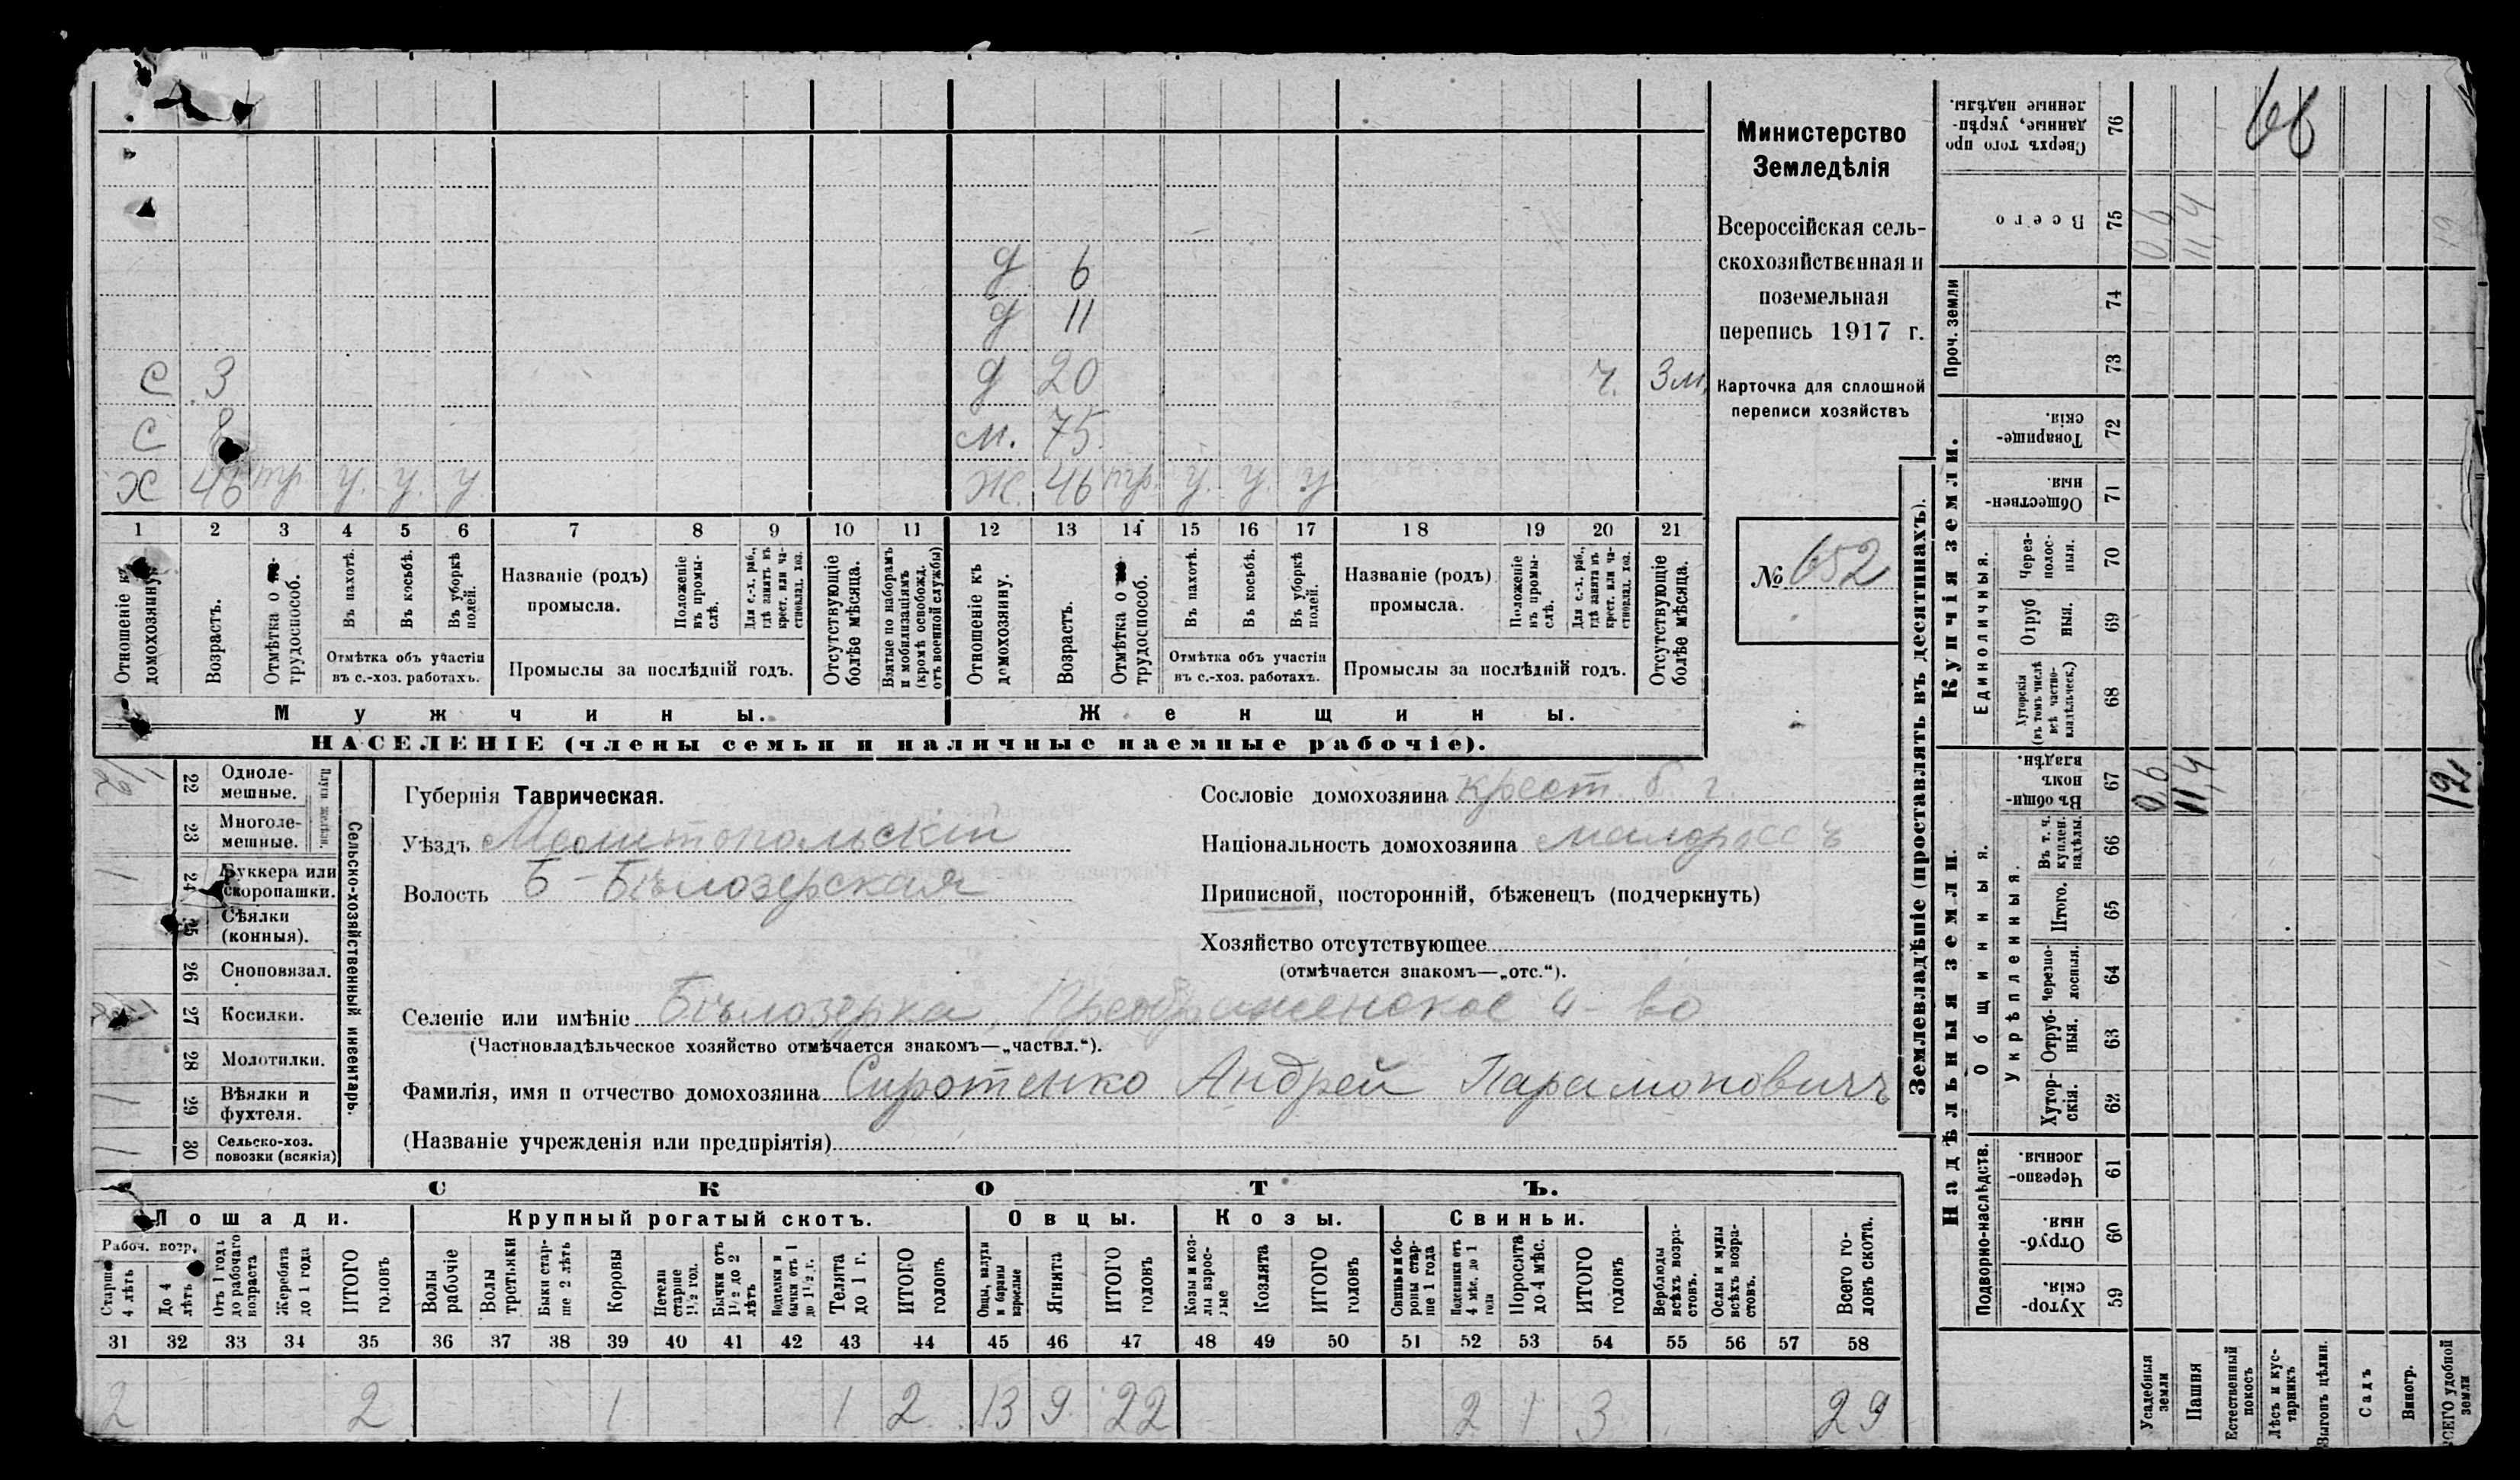 д 6
д 11
С 3 д 20 ч. 3 м.
С м. 75.
Х 46 тр у. у. у. Ж. 46 тр. у. у. у
1 2 3 4 5 6 7 8 9 10 11 12 13 14 15 16 17 18 19 20 21
Отношеніе къ домохозяину.
Возрастъ.
Отмѣтка о не-трудоспособ.
Въ пахотѣ.
Въ косьбѣ.
Въ уборкѣ полей.
Отмѣтка объ участіи
въ с.-хоз. работахъ.
Названіе (родъ)
промысла.
Положеніе въ промы-слѣ.
Для с.-х. раб., гдѣ занятъ въ крест. или ча-стновлад. хоз.
Промыслы за послѣдній годъ.
Отсутствующіе болѣе мѣсяца.
Взятые по наборамъ и мобилизаціямъ (кромѣ освобожд. отъ военной службы)
Отношеніе къ домохозяину.
Возрастъ.
Отмѣтка о не-трудоспособ.
Въ пахотѣ.
Въ косьбѣ.
Въ уборкѣ полей.
Отмѣтка объ участіи
въ с.-хоз. работахъ.
Названіе (родъ)
промысла.
Положеніе въ промы-слѣ.
Для с.-х. раб., гдѣ занята въ крест. или ча-стновлад. хоз.
Промыслы за послѣдній годъ.
Отсутствующіе болѣе мѣсяца.
Мужчины.
Женщины.
НАСЕЛЕНІЕ (члены семьи и наличные наемные рабочіе).
Министерство
Земледѣлія
Всероссійская сель-
скохозяйственная и
поземельная
перепись 1917 г.
Карточка для сплошной
переписи хозяйствъ
№ 652
1/2 22 Однолемешные.
23 Многолемешные.
Плуги желѣзн.
1 24 Буккера или скоропашки.
25 Сѣялки (конныя).
26 Сноповязал.
27 Косилки.
28 Молотилки.
1 29 Вѣялки и фухтеля.
1 30 Сельско-хоз. повозки (всякія)
Сельско-хозяйственный инвентарь.
Губернія Таврическая.
Уѣздъ Мелитопольскій
Волость Б-Бѣлозерская
Сословіе домохозяина крест. б. г.
Національность домохозяина малороссъ
Приписной, посторонній, бѣженецъ (подчеркнуть)
Хозяйство отсутствующее
(отмѣчается знакомъ—„отс.“).
Селеніе или имѣніе Бѣлозерка, Преображенское о-во
(Частновладѣльческое хозяйство отмѣчается знакомъ—„частвл.“).
Фамилія, имя и отчество домохозяина Сиротенко Андрей Парамоновичъ
(Названіе учрежденія или предпріятія)
СКОТЪ.
Лошади. Крупный рогатый скотъ. Овцы. Козы. Свиньи.
Рабоч. возр.
Старше 4 лѣтъ
До 4 лѣтъ
Отъ 1 года до рабочаго возраста
Жеребята до 1 года
ИТОГО головъ
Волы рабочіе
Волы третьяки
Быки стар-ше 2 лѣтъ
Коровы
Нетели старше 1 1/2 год.
Бычки отъ 1 1/2 до 2 лѣтъ
Подтелки и бычки отъ 1 до 1 1/2 г.
Телята до 1 г.
ИТОГО головъ
Овцы, валухи и бараны взрослые
Ягнята
ИТОГО головъ
Козы и коз-лы взрос-лые
Козлята
ИТОГО головъ
Свиньи и бо-ровы стар-ше 1 года
Подсвинки отъ 4 мѣс. до 1 года
Поросята до 4 мѣс.
ИТОГО головъ
Верблюды всѣхъ возра-стовъ.
Ослы и мулы всѣхъ возра-стовъ.
Всего го-ловъ скота.
31 32 33 34 35 36 37 38 39 40 41 42 43 44 45 46 47 48 49 50 51 52 53 54 55 56 57 58
2 2 1 1 2 13 9 22 2 1 3 29
Землевладѣніе (проставлять въ десятинахъ).
Купчія земли.
Надѣльныя земли.
Проч. земли
Единоличныя.
Общинныя.
Укрѣпленныя.
Подворно-наслѣдств.
Сверхъ того про-данные, укрѣп-ленные надѣлы. 76 66
Всего 75 0,6 11,4 12
74
73
Товарище-скія. 72
Обществен-ныя. 71
Через-полос-ныя. 70
Отруб-ныя. 69
Хуторскія (въ томъ числѣ всѣ частно-владѣльческ.) 68
Въ общи-номъ владѣн. 67 0,6 11,4 12
Въ т. ч. куплен. надѣлы. 66
Итого. 65
Черезпо-лосныя. 64
Отруб-ныя. 63
Хутор-скія. 62
Черезпо-лосныя. 61
Отруб-ныя. 60
Хутор-скія. 59
Усадебныя земли
Пашня
Естественный покосъ
Лѣсъ и кус-тарникъ
Выгонъ цѣлин.
Садъ
Виногр.
ВСЕГО удобной земли